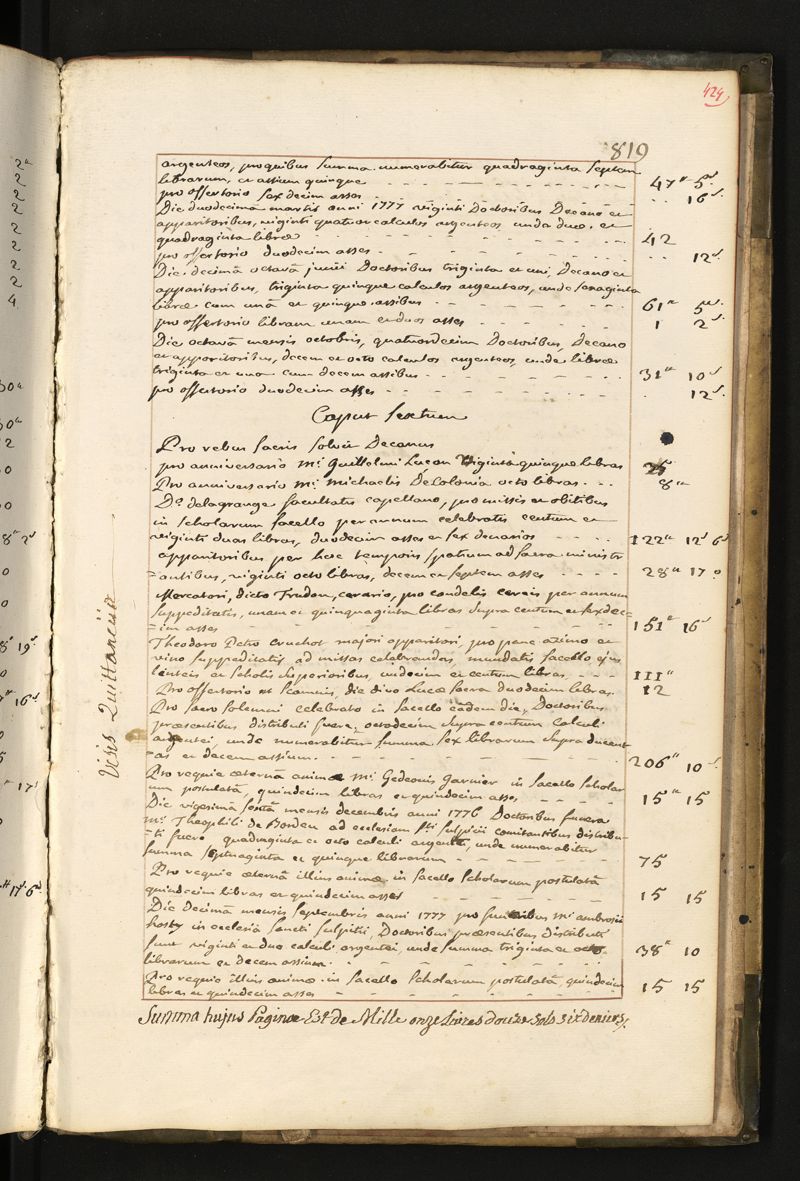 424
819
argenteos, pro quibus summa numerabitur quadraginta septem
librarum, et assium quinque - - - 47# 5s
pro offertorio sexdecim asses - - - 16s
Die duodecima martis anni 1777 viginti Doctoribus Decano et
apparitoribus, viginti quatuor calculos argenteos unda duo, et
quadraginta librae - - - 42
pro offertorio duodecim asses - - - 12s
Die decimâ octavâ junii Doctoribus triginta et uni, Decano et
apparitoribus, triginta quinque calculos argenteos, unde sexaginta
librae cum unâ et quinque assibus - - - 61# 5s
pro offertorio libram unam et duos asses - - - 1 2s
Die octavâ mensis octobris, quatuordecim Doctoribus, Decano
et apparitoribus, decem et octo calculos argenteos, unde librae
triginta et una cum decem assibus - - - 31# 10s
pro offertorio duodecim asses - - - 12s
Caput Sextum
Pro rebus sacris solvit Decanus
pro anniversario Mi Guillelmi Lucan Viginti quinque libras 25
Pro anniversario Mi michaelis DeColonia octo libras - - - 8#
Do delagrange facultatis capellano, pro missis et obitibus
in scholarum sacello per annum celebratis centum et
viginti duas libras, duodecim asses et sex denarios - - - 122# 12s 6d
apparitoribus per hoc temporis spatium ad sacra ministr
=antibus, viginti octo libras, decem et septem asses - - - 28# 17 0
Mercatori, dicto Trudon, cerario, pro candelis cereis per annum
suppeditatis, unam et quinquaginta libras supra centum et sexdec=
=im asses - - - 151# 16s
Theodoro Petro cruchot majori apparitori, pro pane azimo et
vino suppeditatis ad missas celebrandas, mundatis sacello ejus
linteis et scholis superioribus, undecim et centum libras - - - 111#
Pro offertorio et scamnis, die divo Lucae sacra duodecim libras. 12
Pro sacro solemni celebrato in sacello eâdem die, Doctoribus
praesentibus distributi fuere, octodecim supra centum calculi
argentei, unde numerabitur summa sex librarum supra ducent
=as et decem assium - - - 206# 10s
Pro requie aeternâ animae Mi Gedeonis garnier in sacello scholar
um postulatâ, quindecim libras et quindecim asses - - - 15# 15
Die vigesimâ sextâ mensis decembris anni 1776 Doctoribus funera
Mi Theophili de Bordeu ad ecclesiam Sti Sulpicii comitantibus distribu-
=ti fuere quadraginta et octo calculi argentei, unde numerabitur
summa septuaginta et quinque librarum - - - 75
Pro requie aeternâ illius animae in sacello Scholarum postulatâ
quindecim libras et quindecim asses - - - 15 15
Die decimâ mensis septembris anni 1777 pro funeribus Mi ambrosii
hosty in ecclesiâ Sancti Sulpitii, Doctoribus praesentibus distributi
sunt viginti et duo calculi argentei, unde summa triginta et octo-
librarum et decem assium - - - 38# 10
Pro requie illius animae in sacello Scholarum postulatâ, quindecim
libras et quindecim asses - - - 15 15
Summa hujus Paginae Est de Mille onze Livres douze sols six deniers/.
Visis Quittanciis